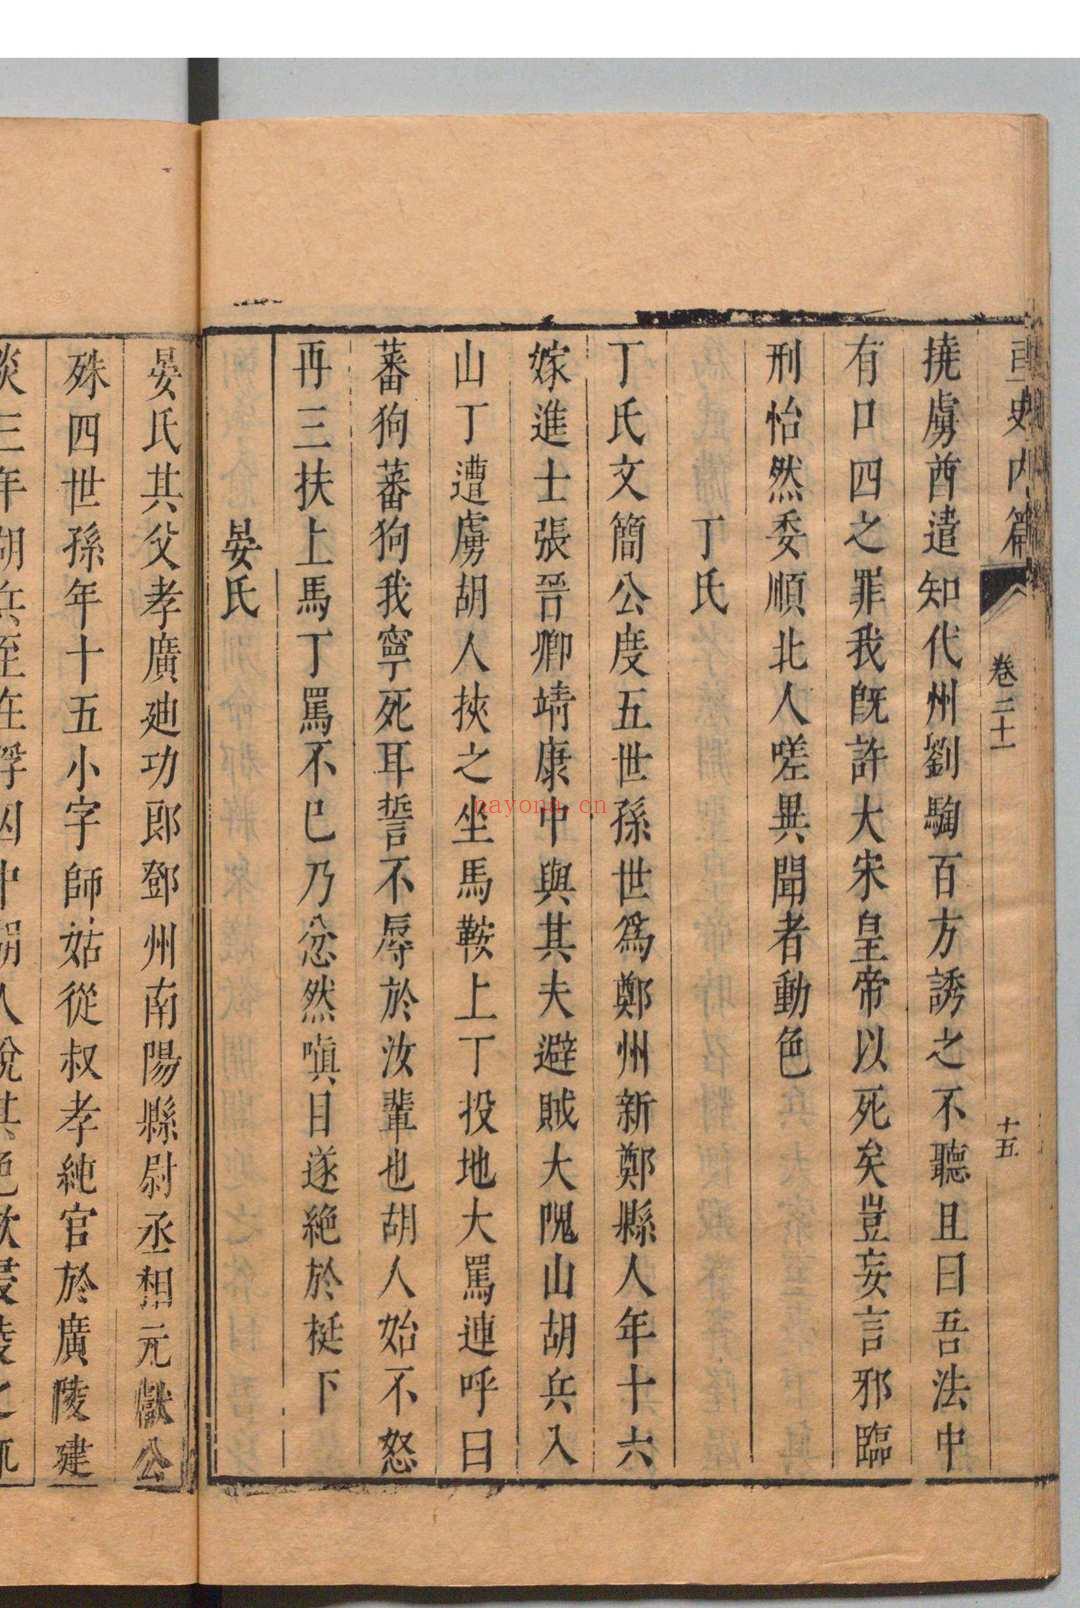 史內篇
卷二十一
十五
撓虜酋遣知代州劉騊百方誘之不聽且曰吾法中
有口四之罪我既許大宋皇帝以死矣豈妄言邪臨
刑怡然委順北人嗟異聞者動色
丁氏
丁氏文簡公度五世孫世爲鄭州新鄭縣人年十六
嫁進士張晉卿靖康中與其夫避賊大隗山胡兵入
山丁遭虜胡人挾之坐馬鞍上丁投地大罵連呼曰
蕃狗蕃狗我寧死耳誓不辱於汝輩也胡人始不怒
再三扶上馬丁罵不已乃忿然嗔目遂絶於梃下
晏氏
晏氏其父孝廣廸功郎鄧州南陽縣尉丞相元獻公
殊四世孫年十五小字師姑從叔孝純官於廣陵建
炎三年胡兵至在俘囚中胡人悅其色欲
nayona.cn